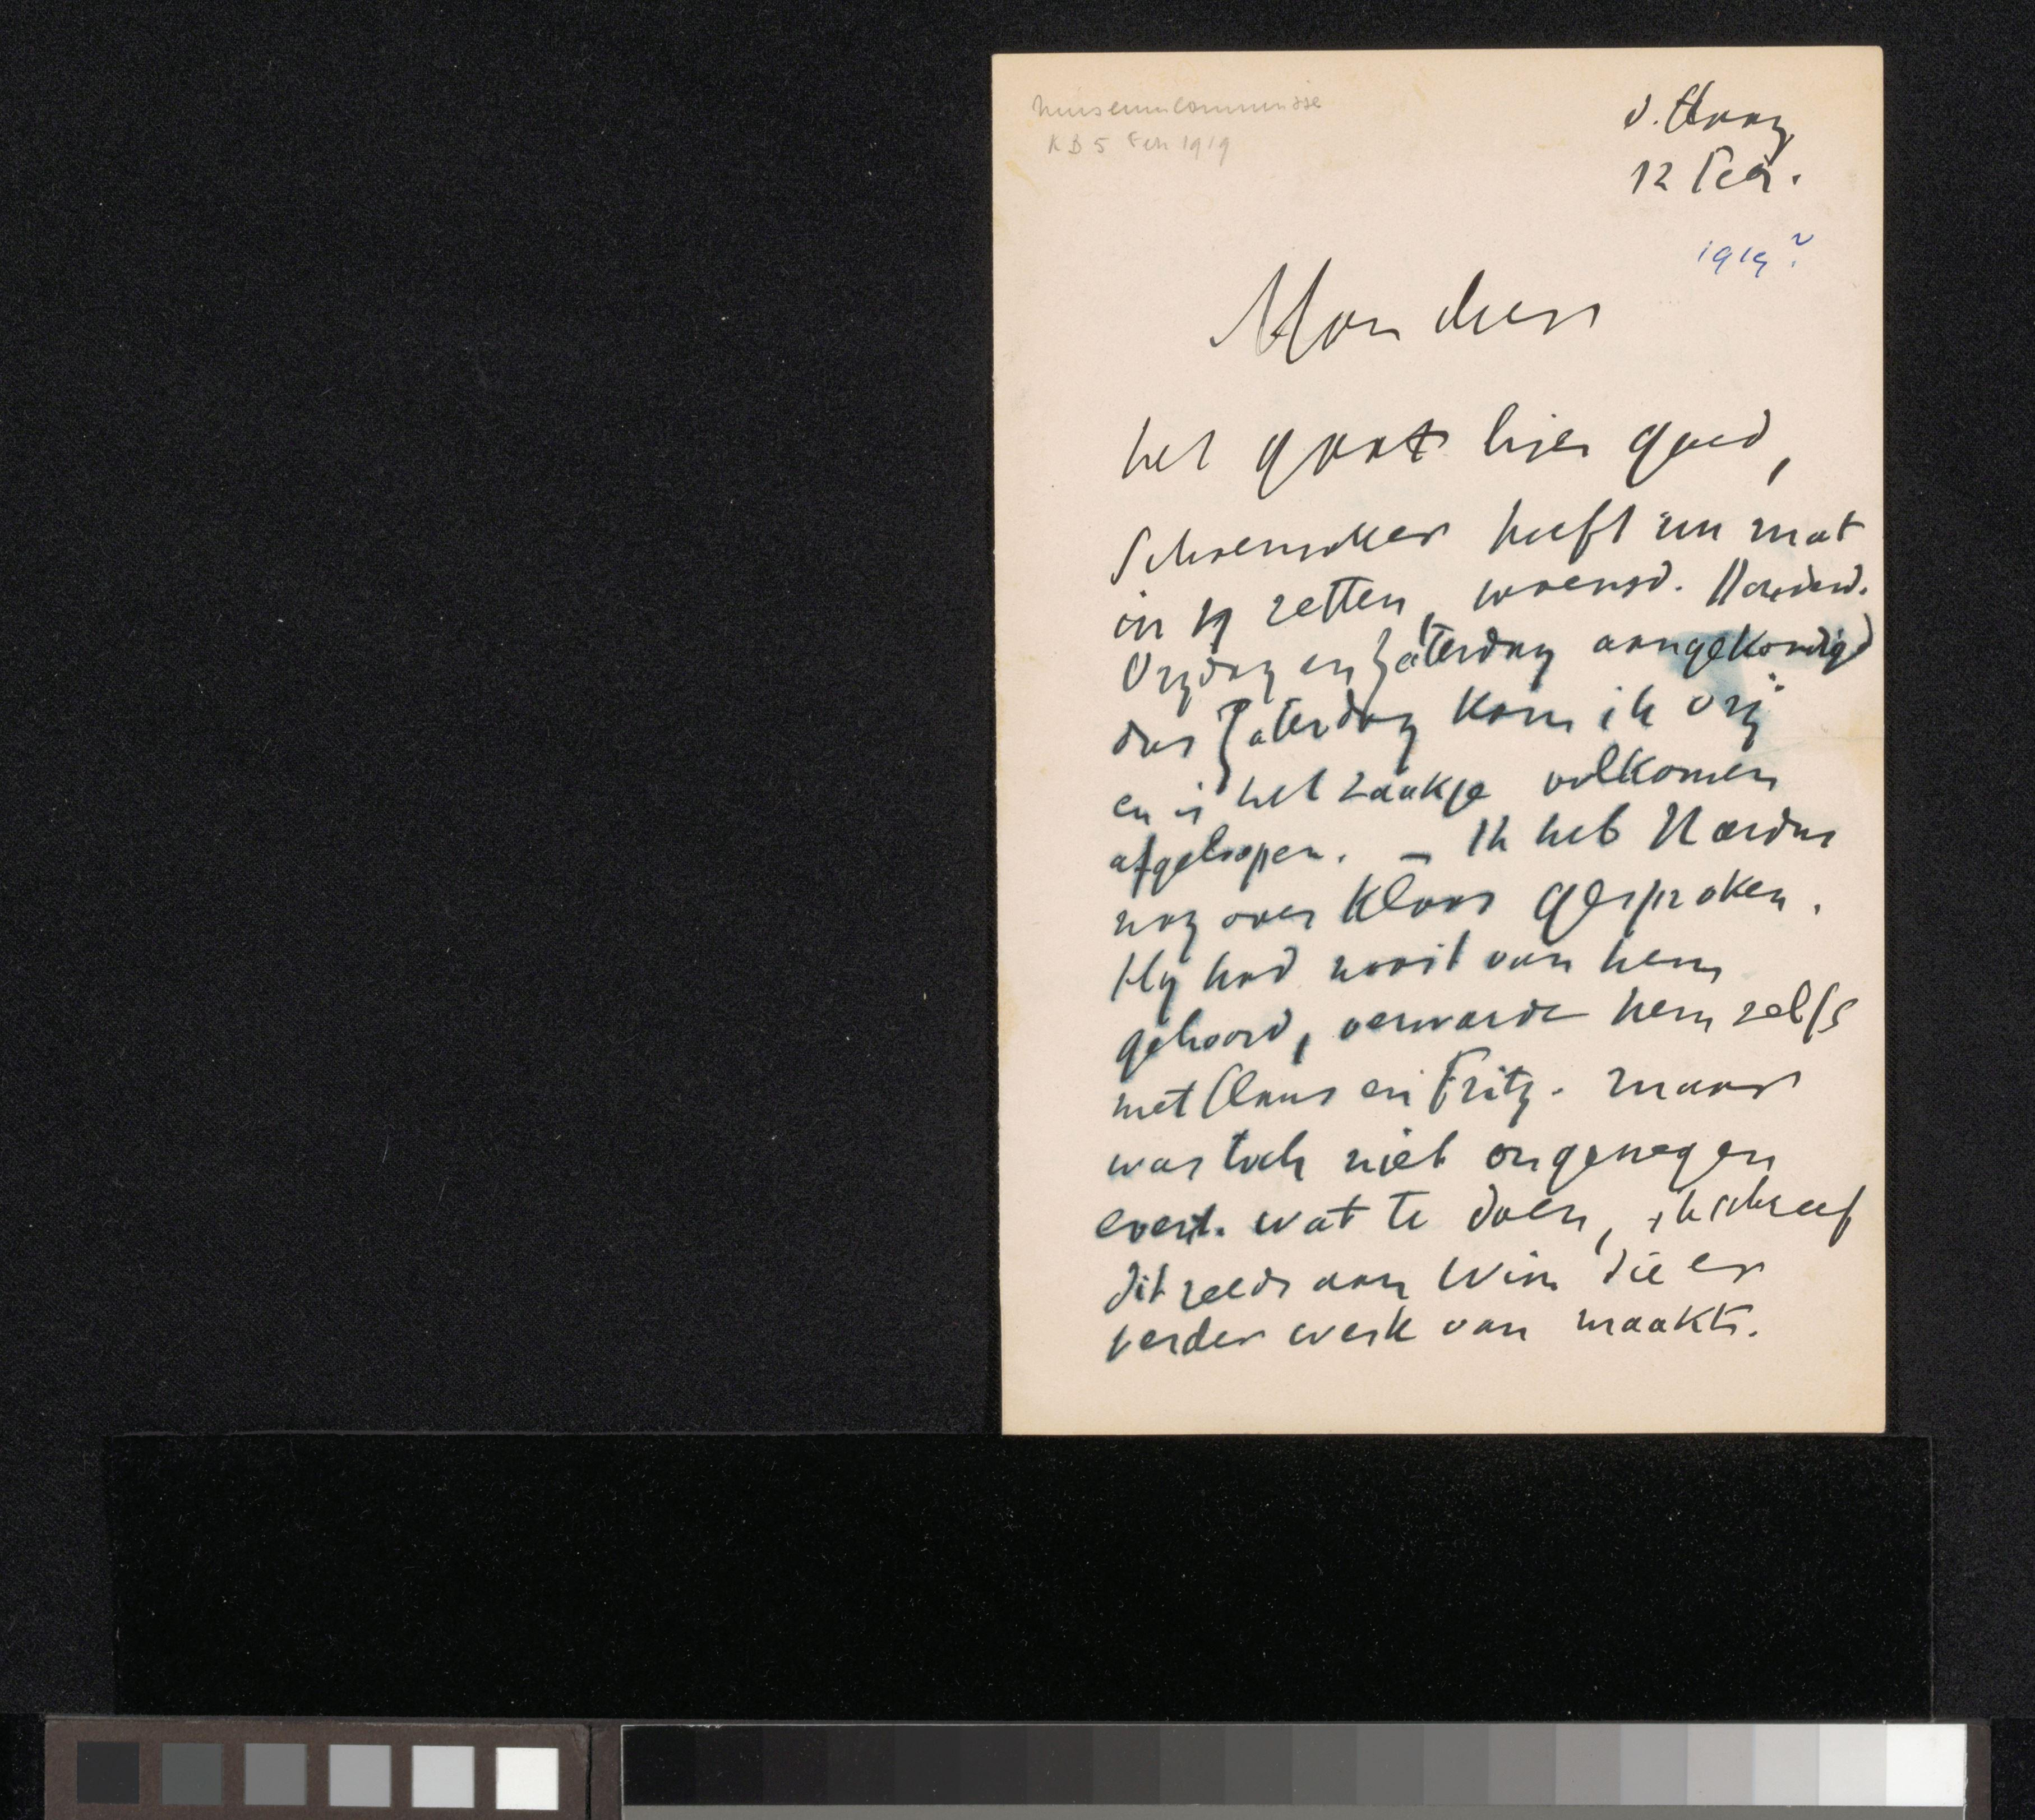 Museumcommissie
KB 5 Feb 1919
d. Haag
12 Feb.
1919?
Mon cher
het gaat hier goed,
Schoenmaker heeft un mat
in zetten, woensd. Donderd.
Vrydag en Zaterdag aangekondigd
dus Zaterdag kom ik vrij
en is het zaakje volkomen
afgeloopen. – Ik heb Nardus
nog over Klaas gesproken.
Hy had nooit van hem
gehoord, verwarde hem zelfs
met Claus en Fritz. maar
was toch niet ongenegen
event. wat te doen, ik schreef
dit reeds aan Wim die er
verder werk van maakte.